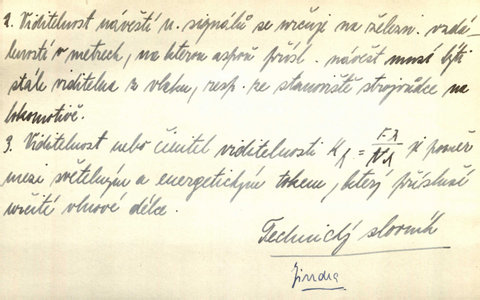 2. Viditelnost návěstí n. signálů se určuje na železn. vzdá-
leností v metrech, na kterou aspoň přísl. návěst musí býti
stále viditelna z vlaku, resp. ze stanoviště strojvůdce na
lokomotivě.
3. Viditelnost nebo činitel viditelnosti Kλ = Fλ/Wλ je poměr
mezi světelným a energetickým tokem, který přísluší
určité vlnové délce.
Technický slovník
Jindra